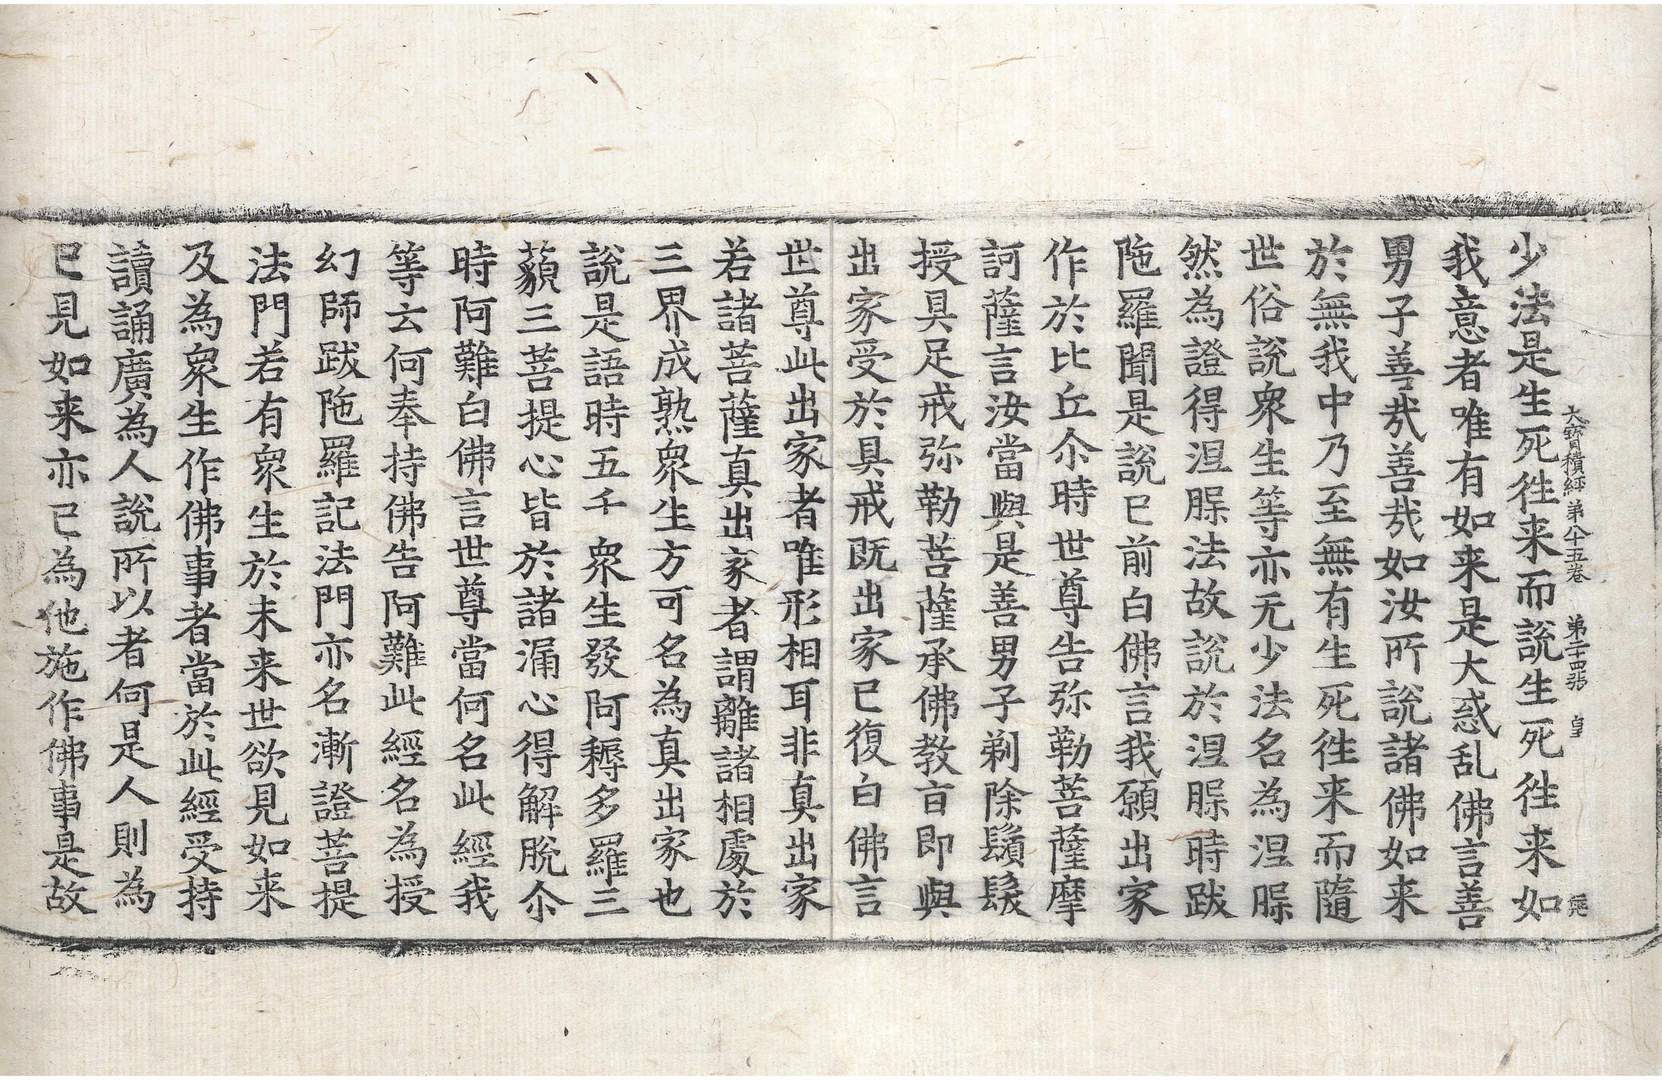 大寶積經第八十五卷　第二十四張　皇
少法是生死徃来而說生死徃来如
我意者唯有如来是大惑乱佛言善
男子善㢤善㢤如汝所說諸佛如来
於無我中乃至無有生死徃来而隨
世俗說衆生等亦无少法名為涅槃
然為證得涅槃法故說於涅槃時跋
陁羅聞是說已前白佛言我願出家
作於比丘尒時世尊告弥勒菩薩摩
訶薩言汝當與是善男子剃除鬚髮
授具足戒弥勒菩薩承佛教旨即與
出家受於具戒既出家已復白佛言
世尊此出家者唯形相耳非真出家
若諸菩薩真出家者謂離諸相處於
三界成熟衆生方可名為真出家也
說是語時五千衆生發阿耨多羅三
藐三菩提心皆於諸漏心得解脫尒
時阿難白佛言世尊當何名此經我
等云何奉持佛告阿難此經名為授
幻師跋陁羅記法門亦名漸證菩提
法門若有衆生於未来世欲見如来
及為衆生作佛事者當於此經受持
讀誦廣為人說所以者何是人則為
已見如来亦已為他施作佛事是故